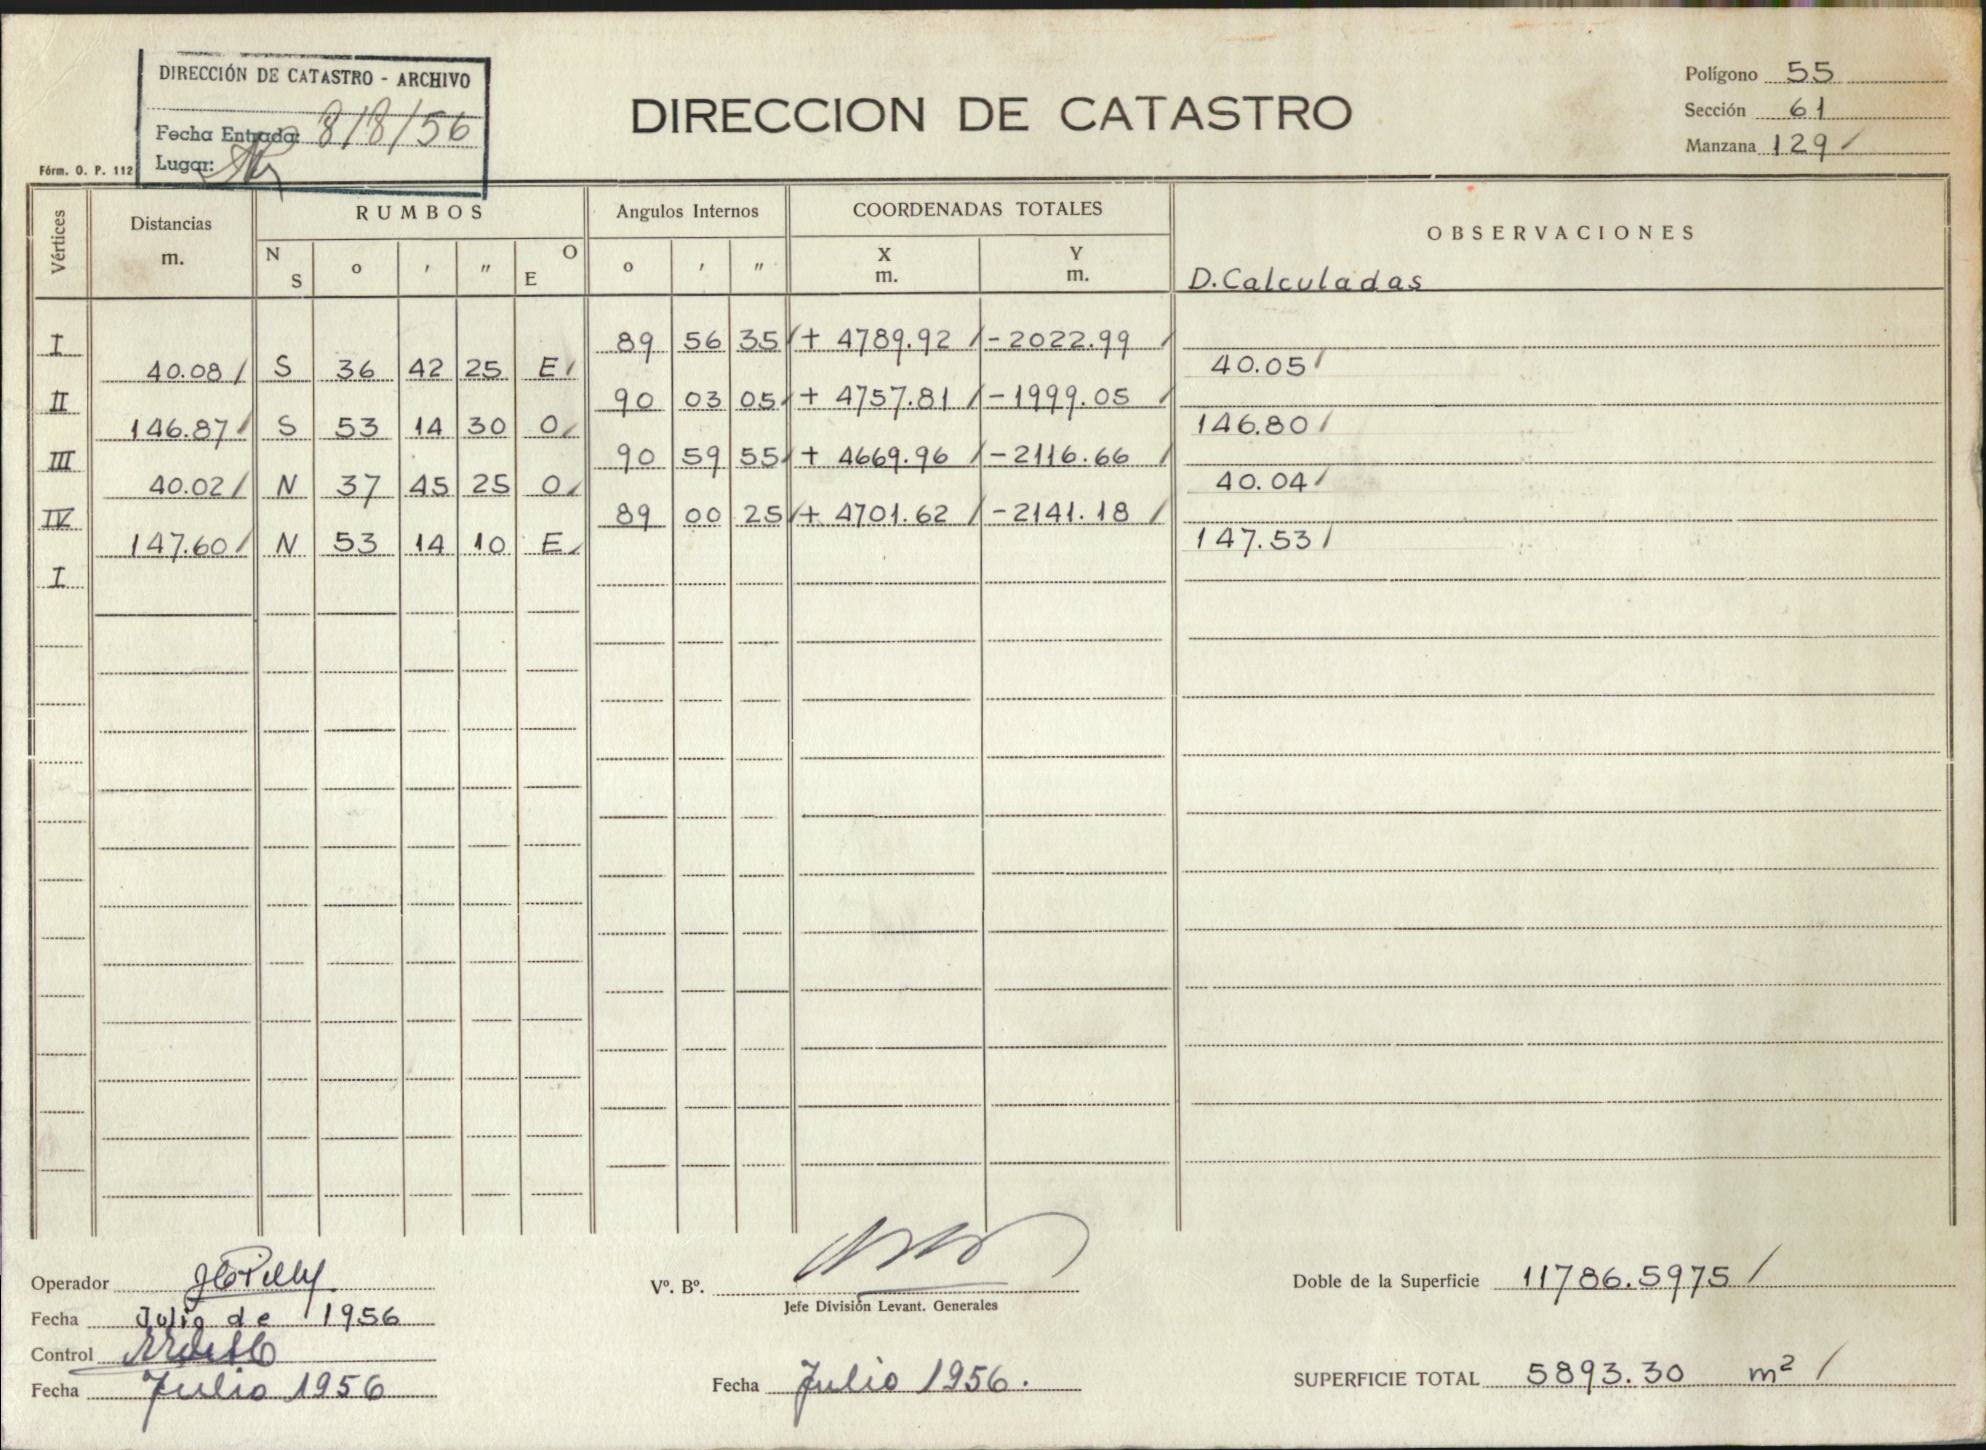 DIRECCIÓN DE CATASTRO - ARCHIVO
Fecha Entrada: 8/8/56
Lugar:
Fórm. O. P. 112
DIRECCION DE CATASTRO
Polígono 55
Sección 61
Manzana 129 /
Vértices Distancias m. RUMBOS Angulos Internos COORDENADAS TOTALES OBSERVACIONES
N S o ' " O E o ' " X m. Y m. D. Calculadas
I 89 56 35 / + 4789.92 / - 2022.99 /
40.08 / S 36 42 25 E / 40.05 /
II 90 03 05 / + 4757.81 / - 1999.05 /
146.87 / S 53 14 30 O / 146.80 /
III 90 59 55 / + 4669.96 / - 2116.66 /
40.02 / N 37 45 25 O / 40.04 /
IV 89 00 25 / + 4701.62 / - 2141.18 /
147.60 / N 53 14 10 E / 147.53 /
I
Operador
Fecha Julio de 1956
Control
Fecha Julio 1956
Vº. Bº.
Jefe División Levant. Generales
Fecha Julio 1956.
Doble de la Superficie 11786.5975 /
SUPERFICIE TOTAL 5893.30 m² /